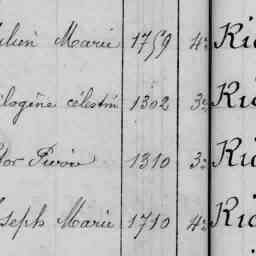 ulien Marie 1759 4e Ric
ilogène célestin 1302 3e Ric
tor Pierre 1310 3e Ric
oseph Marie 1710 4e Ric